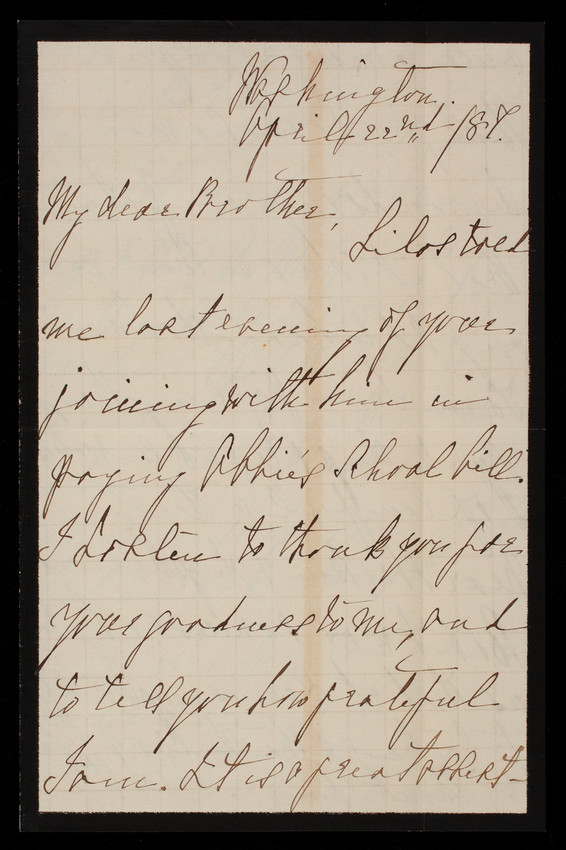 Washington.
April 22nd /87.
My dear Brother,
Silas told
me last evening of your
joining with him in
paying Abbie's school bill.
I hasten to thank you for
your goodness to me, and
to tell you how grateful
I am. It is a great assist-